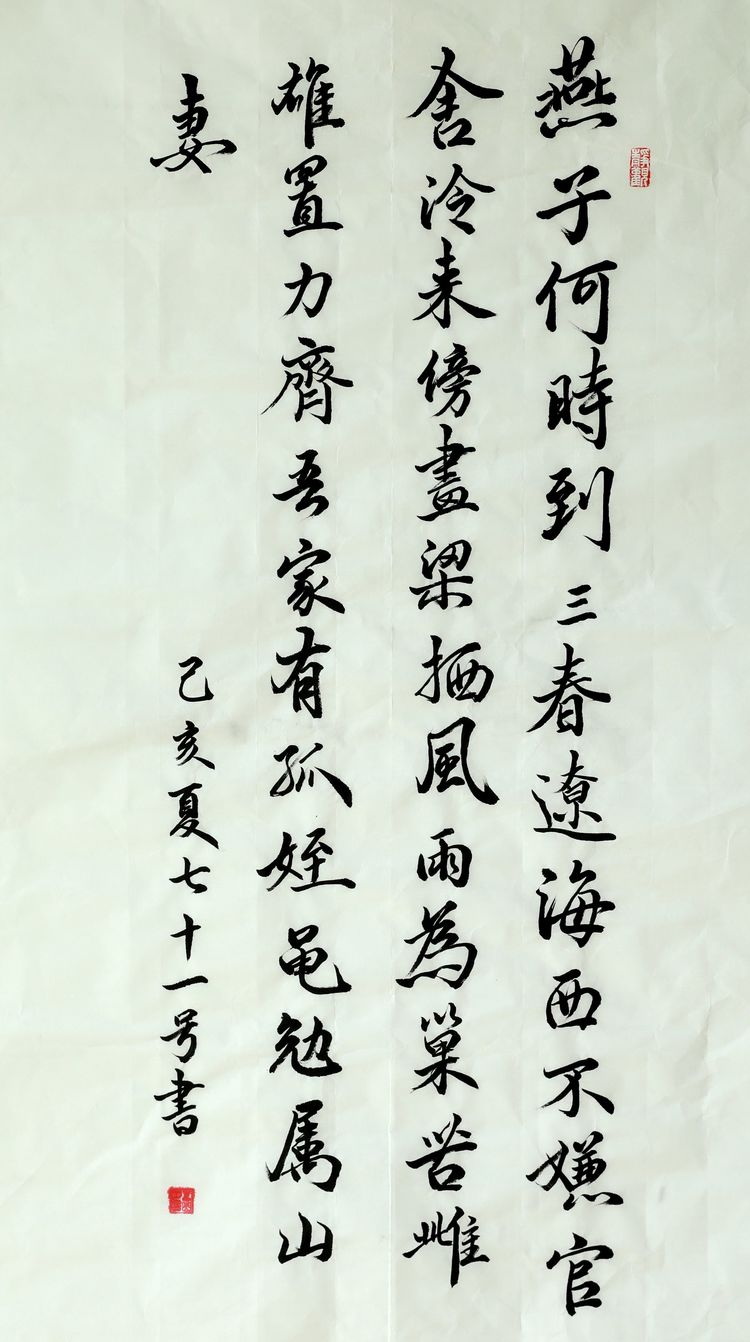 燕子何時到三春遼海西不嫌官
舍冷来傍畫梁栖風雨為巢苦雌
雄置力齊吾家有孤姪黽勉属山
妻
己亥夏七十一号書